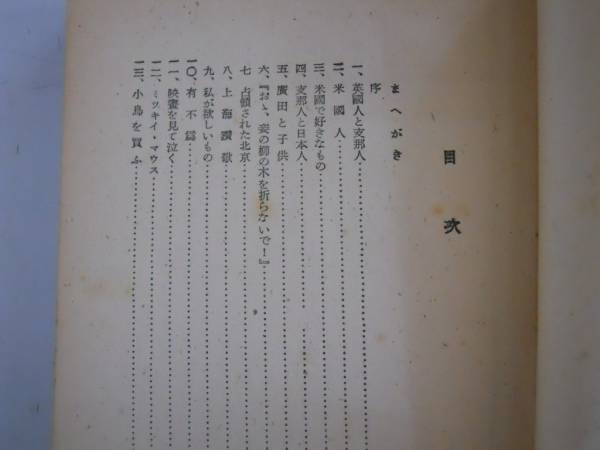 目次
まへがき
序
一、英國人と支那人
二、米國人
三、米國で好きなもの
四、支那人と日本人
五、廣田と子供
六、『おゝ、妾の柳の木を折らないで！』
七、占領された北京
八、上海讃歌
九、私が欲しいもの
一〇、有不爲
一一、映畫を見て泣く
一二、ミツキイ・マウス
一三、小鳥を買ふ